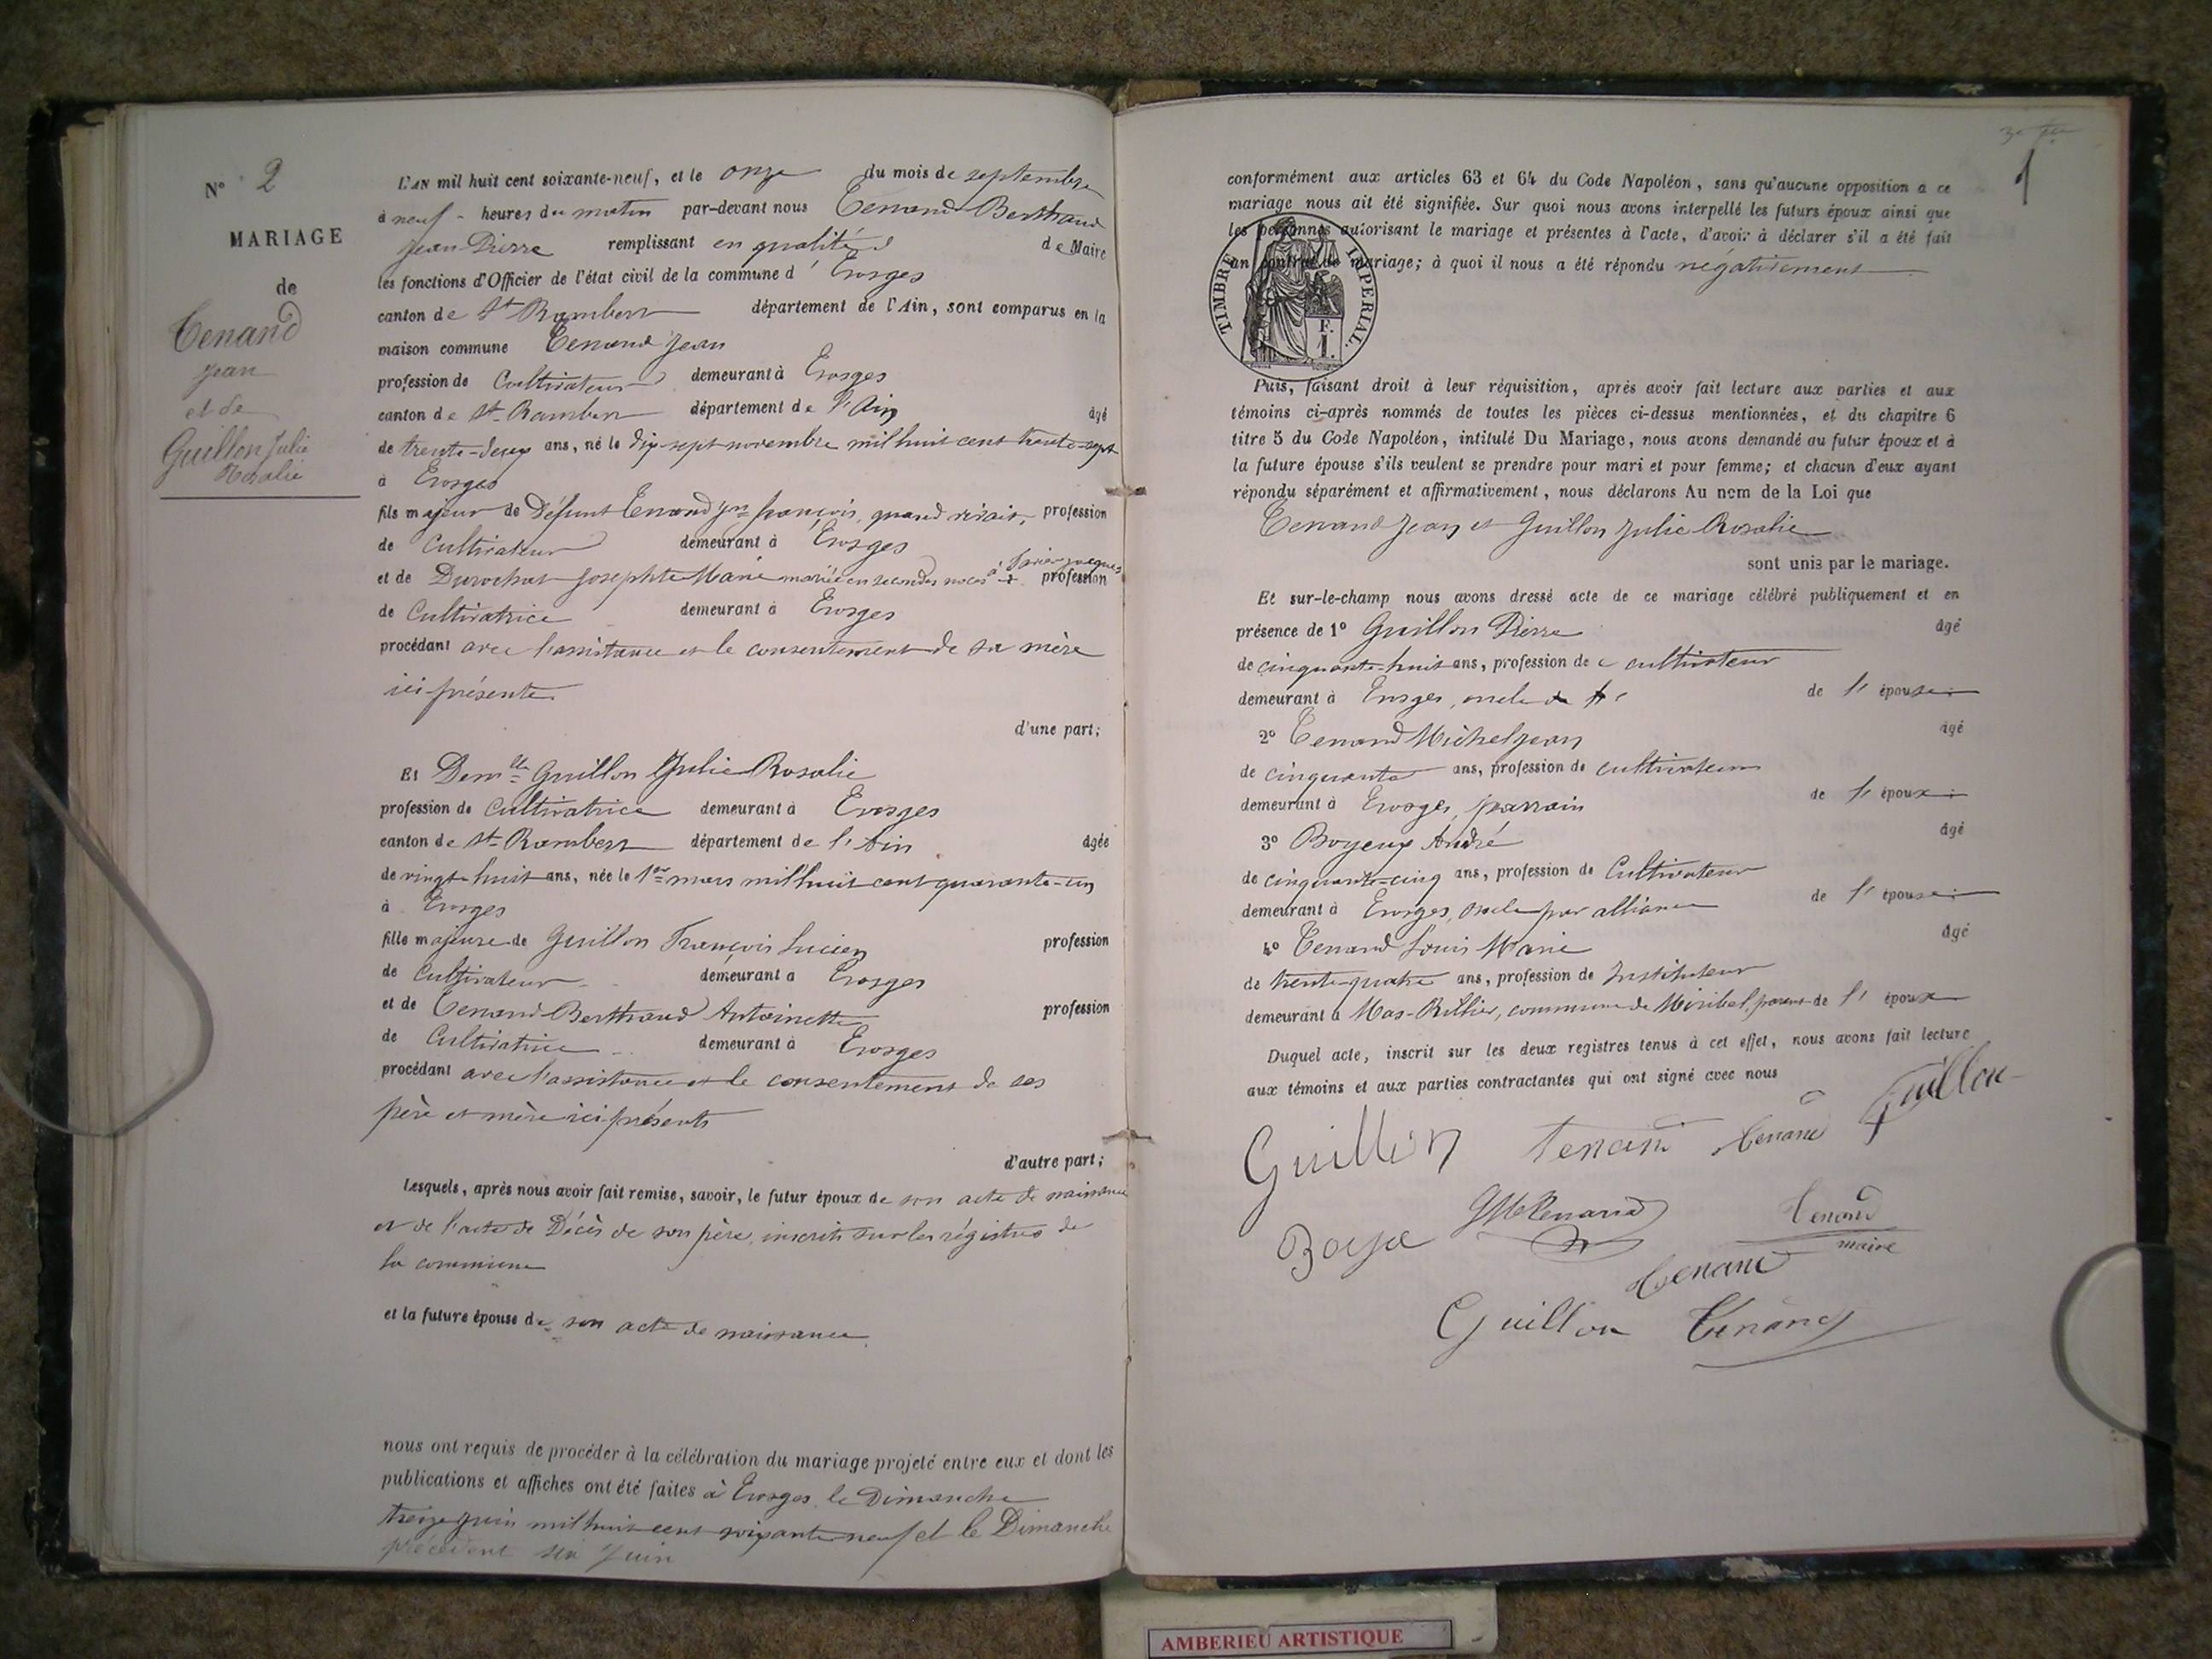 N° 2
MARIAGE
de
Tenand
Jean
et de
Guillon Julie
Rosalie
L'AN mil huit cent soixante-neuf, et le onze du mois de septembre
à neuf heures du matin par-devant nous Tenand-Berthaud
Jean Pierre remplissant en qualité de Maire
les fonctions d'Officier de l'état civil de la commune d'Evosges
canton de St Rambert département de l'Ain, sont comparus en la
maison commune Tenand Jean
profession de Cultivateur demeurant à Evosges
canton de St-Rambert département de l'Ain âgé
de trente-deux ans, né le dix-sept novembre mil huit cent trente-sept
à Evosges
fils majeur de Défunt Tenand Jn François, quand vivait, profession
de Cultivateur demeurant à Evosges
et de Durochat Josephte Marie mariée en secondes noces à profession
de Cultivatrice demeurant à Evosges
procédant avec l'assistance et le consentement de sa mère
ici présente
d'une part;
Et Demlle Guillon Julie Rosalie
profession de Cultivatrice demeurant à Evosges
canton de St-Rambert département de l'Ain âgée
de vingt-huit ans, née le 1er mars mil huit cent quarante-un
à Evosges
fille majeure de Guillon François Lucien profession
de Cultivateur demeurant à Evosges
et de Tenand-Berthaud Antoinette profession
de Cultivatrice demeurant à Evosges
procédant avec l'assistance et le consentement de ses
père et mère ici présents
d'autre part;
Lesquels, après nous avoir fait remise, savoir, le futur époux de son acte de naissance
et de l'acte de Décès de son père, inscrits sur les régistres de
la commune
et la future épouse de son acte de naissance.
nous ont requis de procéder à la célébration du mariage projeté entre eux et dont les
publications et affiches ont été faites à Evosges le Dimanche
treize juin mil huit cent soixante-neuf et le Dimanche
précédent six Juin
1
conformément aux articles 63 et 64 du Code Napoléon, sans qu'aucune opposition a ce
mariage nous ait été signifiée. Sur quoi nous avons interpellé les futurs époux ainsi que
les personnes autorisant le mariage et présentes à l'acte, d'avoir à déclarer s'il a été fait
un contrat de mariage; à quoi il nous a été répondu négativement
TIMBRE IMPERIAL.
F.
1.
Puis, faisant droit à leur réquisition, après avoir fait lecture aux parties et aux
témoins ci-après nommés de toutes les pièces ci-dessus mentionnées, et du chapitre 6
titre 5 du Code Napoléon, intitulé Du Mariage, nous avons demandé au futur époux et à
la future épouse s'ils veulent se prendre pour mari et pour femme; et chacun d'eux ayant
répondu séparément et affirmativement, nous déclarons Au nom de la Loi que
Tenand Jean et Guillon Julie Rosalie
sont unis par le mariage.
Et sur-le-champ nous avons dressé acte de ce mariage célébré publiquement et en
présence de 1° Guillon Pierre âgé
de cinquante-huit ans, profession de cultivateur
demeurant à Evosges, oncle de l'épouse
2° Tenand Michel Jean âgé
de cinquante ans, profession de cultivateur
demeurant à Evosges, parrain de l'époux
3° Boyeux André âgé
de cinquante-cinq ans, profession de Cultivateur
demeurant à Evosges, oncle par alliance de l'épouse
4° Tenand Louis Marie âgé
de trente-quatre ans, profession de Instituteur
demeurant à Mas-Rillier, commune de Miribel, parent de l'époux
Duquel acte, inscrit sur les deux registres tenus à cet effet, nous avons fait lecture
aux témoins et aux parties contractantes qui ont signé avec nous
Guillon Tenand Tenand Guillon
Tenand
maire
Tenand
Guillon Tenand
AMBERIEU ARTISTIQUE